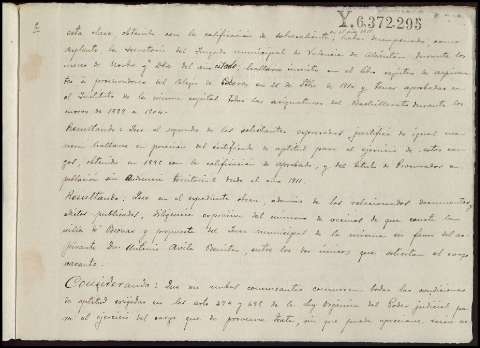 Y.6.372.295
esta clase, obtenido con la calificación de sobresaliente; haber desempeñado, como
suplente, la Secretaría del Juzgado municipal de Valencia de durante los
meses de y del año hallarse inscrito en el libro registro de aspiran
te á procuradores del Colegio de Cáceres en 21 de de 1910 y tener aprobadas en
el Instituto de la misma capital todas las asignaturas del Bachillerato durante los
cursos de 1899 á 1904.
Resultando: Que el segundo de los solicitantes expresados justifica de igual ma
nera hallarse en posesión del certificado de aptitud para el ejercicio de estos car
gos, obtenido en 1892 con la calificación de aprobado, y del título de Procurador en
población sin Audiencia territorial desde el año 1911.
Resultando: Que en el expediente obran, además de los relacionados documentos,
edictos publicados, diligencia expresiva del número de vecinos de que consta la
villa de y propuesta del Juez municipal de la misma en favor del as
pirante Don Antonio Avila entre los dos únicos que solicitan el cargo
vacante.
Considerando: Que en ambos concursantes concurren todas las condiciones
de aptitud exigidas en los arts 474 y 475 de la Ley Orgánica del Poder judicial pa
ra el ejercicio del cargo que de proveerse trata, sin que pueda apreciarse